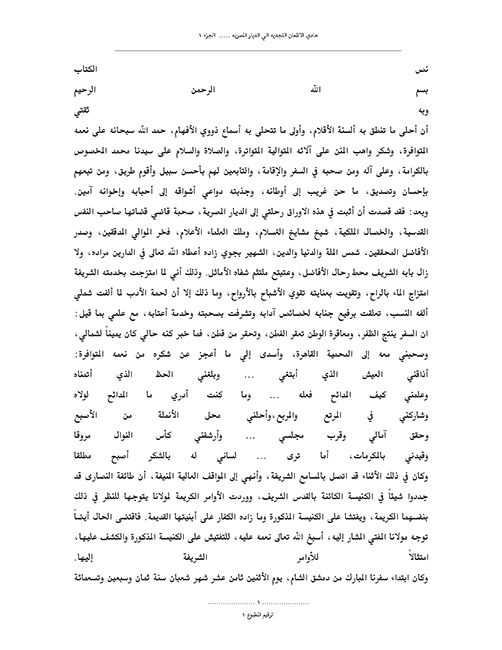 حادي الأظعان النجديه الي الديار المصريه ..... الجزء ١
نص الكتاب
بسم الله الرحمن الرحيم
وبه ثقتي
أن أحلى ما تنطق به ألسنة الأقلام، وأولى ما تتحلى به أسماع ذووي الأفهام، حمد الله سبحانه على نعمه
المتوافرة، وشكر واهب المنن على آلائه المتوالية المتواترة، والصلاة والسلام على سيدنا محمد المخصوص
بالكرامة، وعلى آله ومن صحبه في السفر والإقامة، والتابعين لهم بأحسن سبيل وأقوم طريق، ومن تبعهم
بإحسان وتصديق، ما حن غريب إلى أوطانه، وجذبته دواعي أشواقه إلى أحبابه وإخوانه آمين.
وبعد: فقد قصدت أن أثبت في هذه الاوراق رحلتي إلى الديار المصرية، صحبة قاضي قضاتها صاحب النفس
القدسية، والخصال الملكية، شيخ مشايخ الإسلام، وملك العلماء الأعلام، فخر الموالي المدققين، وصدر
الأفاضل المحققين، شمس الملة والدنيا والدين، الشهير بجوي زاده أعطاه الله تعالى في الدارين مراده، ولا
زال بابه الشريف محط رحال الأفاضل، وعتبتع ملتثم شفاه الأماثل. وذلك أني لما امتزجت بخدمته الشريفة
امتزاج الماء بالراح، وتقويت بعنايته تقوي الأشباح بالأرواح، وما ذلك إلا أن لحمة الأدب لما ألفت شملي
ألفة النسب، تعلقت برفيع جنابه لخصائص آدابه وتشرفت بصحبته وخدمة أعتابه، مع علمي بما قيل:
ان السفر ينتج الظفر، ومعاقرة الوطن تعقر الفطن، وتحقر من قطن، فما خبر كنه حالي كان يميناً لشمالي،
وصحبني معه إلى المحمية القاهرة، وأسدى إلي ما أعجز عن شكره من نعمه المتوافرة:
أذاقني العيش الذي أبتغي ... وبلغني الحظ الذي أتمناه
وعلمني كيف المدائح فعله ... وما كنت أدري ما المدائح لولاه
وشاركني في المرتع والمربع،وأحلني محل الأنملة من الأصبع
وحقق آمالي وقرب مجلسي ... وأرشفني كأس النوال مروقا
وقيدني بالمكرمات، أما ترى ... لساني له بالشكر أصبح مطلقا
وكان في ذلك الأثناء قد اتصل بالمسامع الشريفة، وأنهي إلى المواقف العالية المنيفة، أن طائفة النصارى قد
جددوا شيئاً في الكنيسة الكائنة بالقدس الشريف، ووردت الأوامر الكريمة لمولانا يتوجها للنظر في ذلك
بنفسهما الكريمة، ويفتشا على الكنيسة المذكورة وما زاده الكفار على أبنيتها القديمة. فاقتضى الحال أيضاً
توجه مولانا المفتي المشار إليه، أسبغ الله تعالى نعمه عليه، للتفتيش على الكنيسة المذكورة والكشف عليها،
امتثالاً للأوامر الشريفة إليها.
وكان ابتداء سفرنا المبارك من دمشق الشام، يوم الأثنين ثامن عشر شهر شعبان سنة ثمان وسبعين وتسعمائة
...................... ١ ......................
ترقيم المطبوع ١